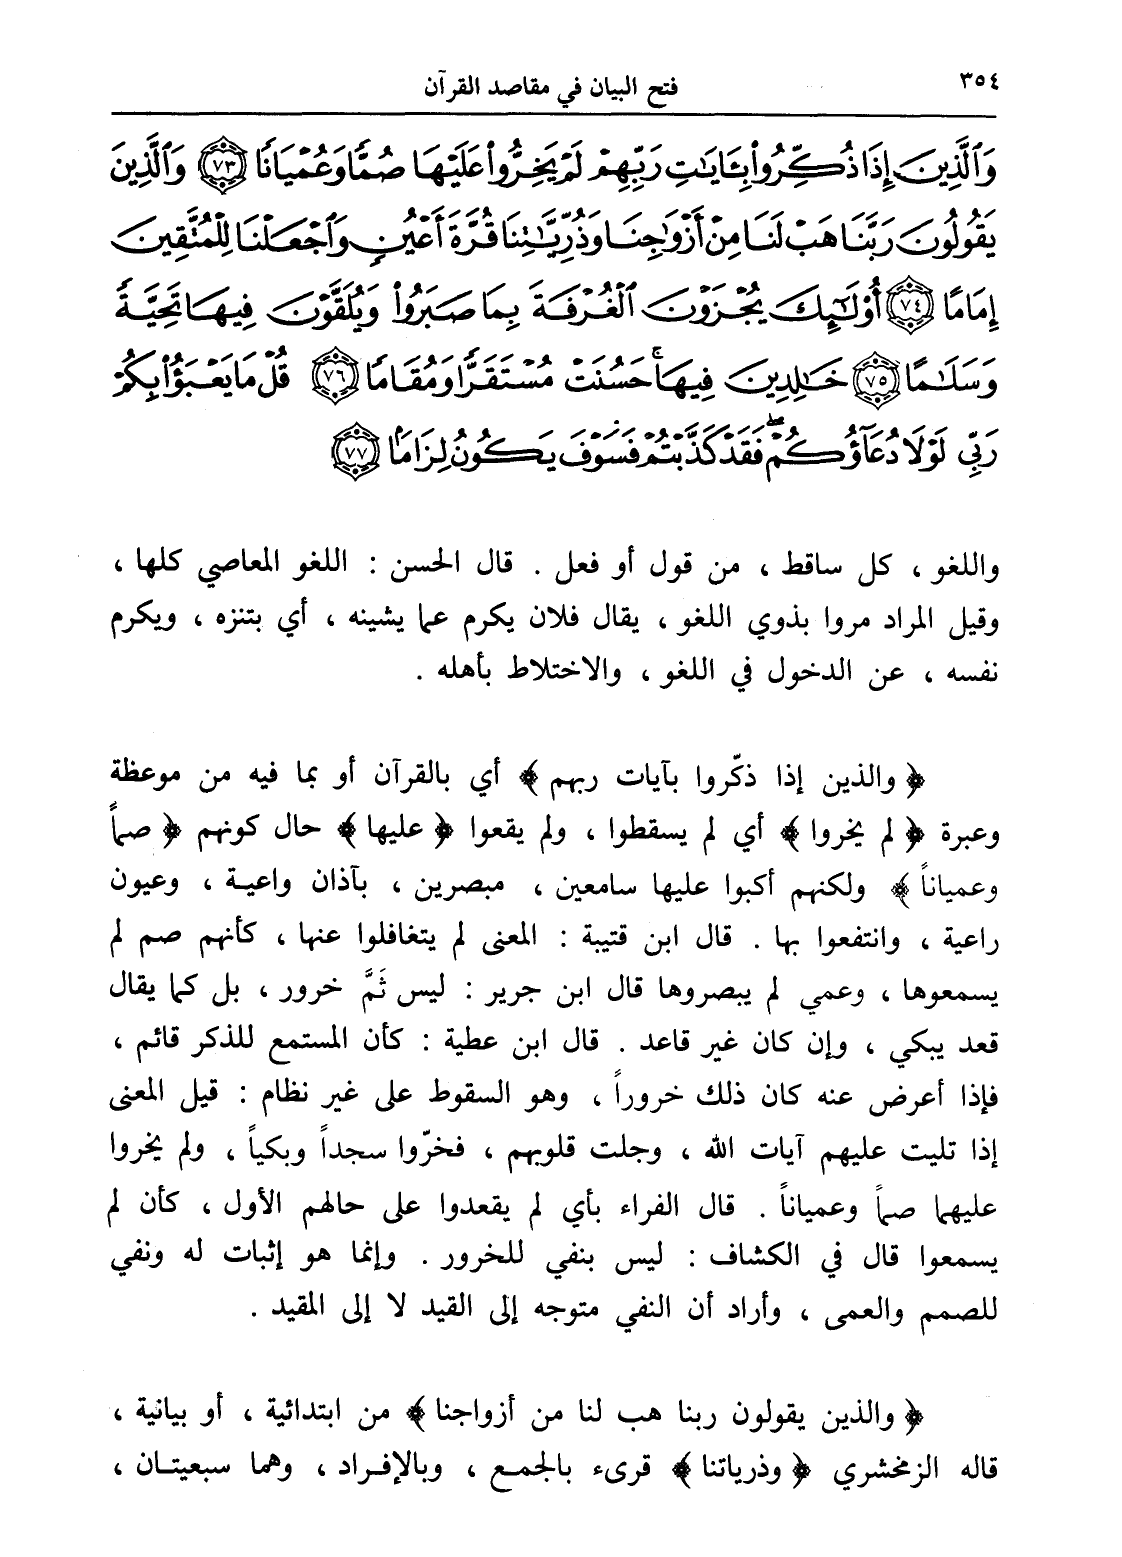 ٣٥٤
فتح البيان في مقاصد القرآن
وَٱلَّذِينَ إِذَا ذُكِّرُوا۟ بِـَٔايَٰتِ رَبِّهِمْ لَمْ يَخِرُّوا۟ عَلَيْهَا صُمًّا وَعُمْيَانًا ٧٣ وَٱلَّذِينَ
يَقُولُونَ رَبَّنَا هَبْ لَنَا مِنْ أَزْوَٰجِنَا وَذُرِّيَّٰتِنَا قُرَّةَ أَعْيُنٍ وَٱجْعَلْنَا لِلْمُتَّقِينَ
إِمَامًا ٧٤ أُو۟لَٰٓئِكَ يُجْزَوْنَ ٱلْغُرْفَةَ بِمَا صَبَرُوا۟ وَيُلَقَّوْنَ فِيهَا تَحِيَّةً
وَسَلَٰمًا ٧٥ خَٰلِدِينَ فِيهَا ۚ حَسُنَتْ مُسْتَقَرًّا وَمُقَامًا ٧٦ قُلْ مَا يَعْبَؤُا۟ بِكُمْ
رَبِّى لَوْلَا دُعَآؤُكُمْ ۖ فَقَدْ كَذَّبْتُمْ فَسَوْفَ يَكُونُ لِزَامًا ٧٧
واللغو ، كل ساقط ، من قول أو فعل . قال الحسن : اللغو المعاصي كلها ،
وقيل المراد مروا بذوي اللغو ، يقال فلان يكرم عما يشينه ، أي بتنزه ، ويكرم
نفسه ، عن الدخول في اللغو ، والاختلاط بأهله .
﴿ والذين إذا ذكّروا بآيات ربهم ﴾ أي بالقرآن أو بما فيه من موعظة
وعبرة ﴿ لم يخروا ﴾ أي لم يسقطوا ، ولم يقعوا ﴿ عليها ﴾ حال كونهم ﴿ صماً
وعمياناً ﴾ ولكنهم أكبوا عليها سامعين ، مبصرين ، بآذان واعية ، وعيون
راعية ، وانتفعوا بها . قال ابن قتيبة : المعنى لم يتغافلوا عنها ، كأنهم صم لم
يسمعوها ، وعمي لم يبصروها قال ابن جرير : ليس ثَمَّ خرور ، بل كما يقال
قعد يبكي ، وإن كان غير قاعد . قال ابن عطية : كأن المستمع للذكر قائم ،
فإذا أعرض عنه كان ذلك خروراً ، وهو السقوط على غير نظام : قيل المعنى
إذا تليت عليهم آيات الله ، وجلت قلوبهم ، فخرّوا سجداً وبكياً ، ولم يخروا
عليهما صماً وعمياناً . قال الفراء بأي لم يقعدوا على حالهم الأول ، كأن لم
يسمعوا قال في الكشاف : ليس بنفي للخرور . وإنما هو إثبات له ونفي
للصمم والعمى ، وأراد أن النفي متوجه إلى القيد لا إلى المقيد .
﴿ والذين يقولون ربنا هب لنا من أزواجنا ﴾ من ابتدائية ، أو بيانية ،
قاله الزمخشري ﴿ وذرياتنا ﴾ قرىء بالجمع ، وبالإفراد ، وهما سبعيتان ،